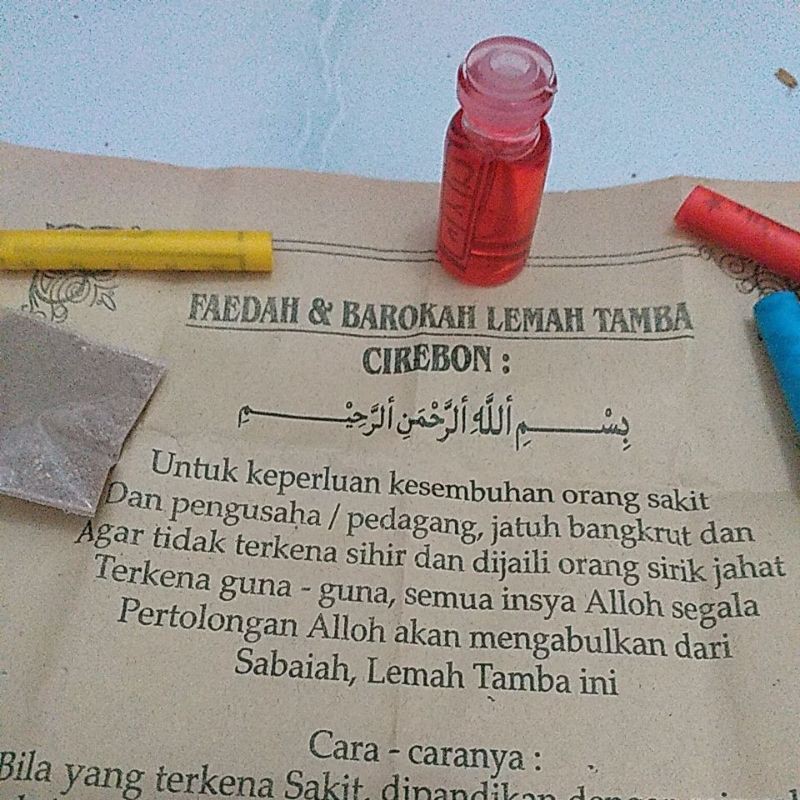 FAEDAH & BAROKAH LEMAH TAMBA
CIREBON :
بِسْمِ اللَّهِ الرَّحْمَنِ الرَّحِيْمِ
Untuk keperluan kesembuhan orang sakit
Dan pengusaha / pedagang, jatuh bangkrut dan
Agar tidak terkena sihir dan dijaili orang sirik jahat
Terkena guna - guna, semua insya Alloh segala
Pertolongan Alloh akan mengabulkan dari
Sabaiah, Lemah Tamba ini
Cara - caranya :
Bila yang terkena Sakit, dipandikan